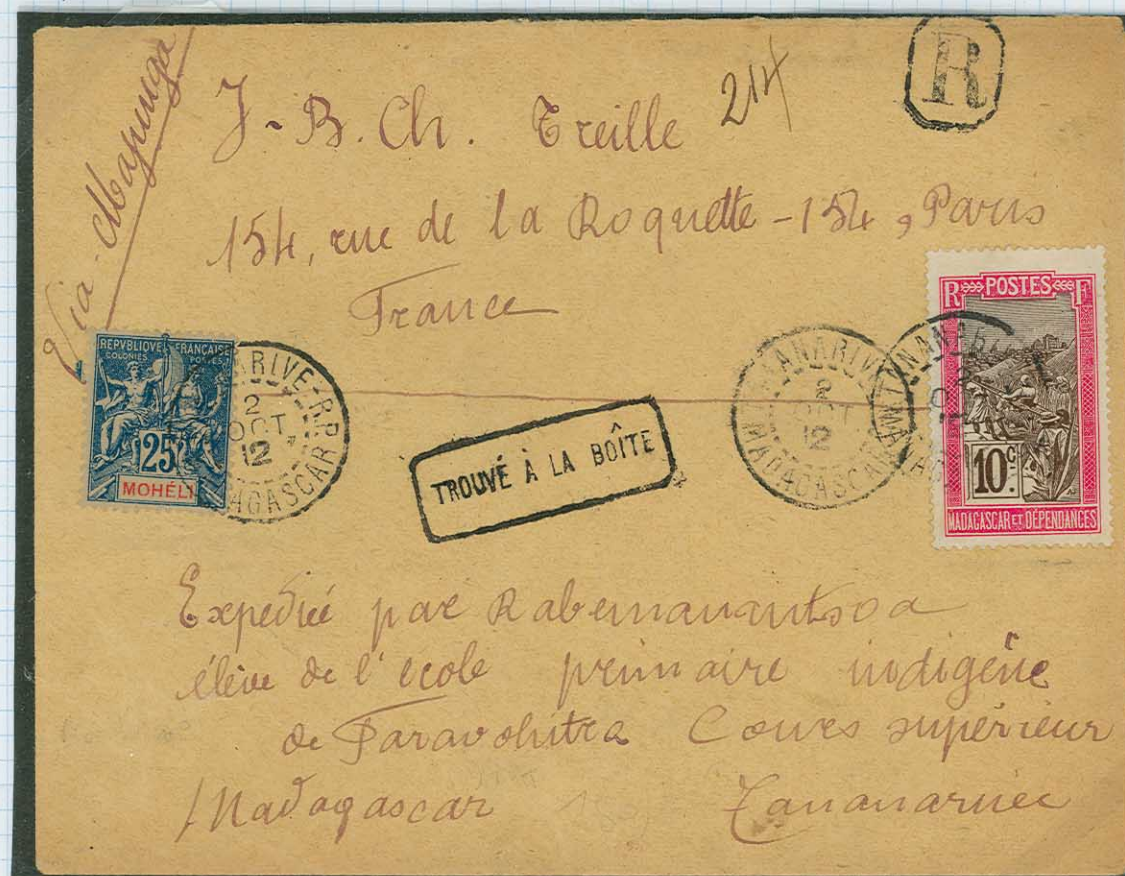 Via Majunga
J-B. Ch. Treille
214
R
154, rue de la Roquette - 154, Paris
France
REPUBLIQUE FRANÇAISE
COLONIES POSTES
25
MOHÉLI
TANANARIVE-R.P.
2
OCT
12
MADAGASCAR
TROUVÉ À LA BOÎTE
TANANARIVE
2
OCT
12
MADAGASCAR
R POSTES F
10 c.
MADAGASCAR ET DÉPENDANCES
Expédié par Rabemanantsoa
élève de l'école primaire indigène
de Faravohitra Cours supérieur
Madagascar Tananarive